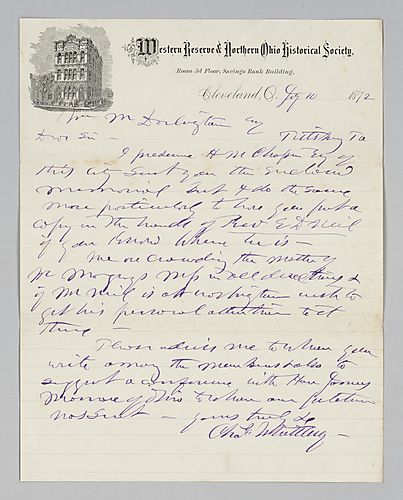 Western Reserve & Northern Ohio Historical Society,
Room 3d Floor, Savings Bank Building,
Cleveland, O. 10 1872
Wm M Darlington Esq
Dear Sir — Pittsburg Pa
I presume H M Chapin Esq of
this city sent you the enclosed
memorial but I do the same
more particularly to have you put a
copy in the hands of Rev E D Neil
if you know where he is —
We are crowding the matter of
Mss in all directions &
if Mr Neil is at Washington wish to
get his personal attention to it
there —
Please advise me to whom you
write among the members also to
suggest a conference with Hon James
Monroe of Ohio to whom our petition
was sent — yours truly &c
Chas Whittlesey —